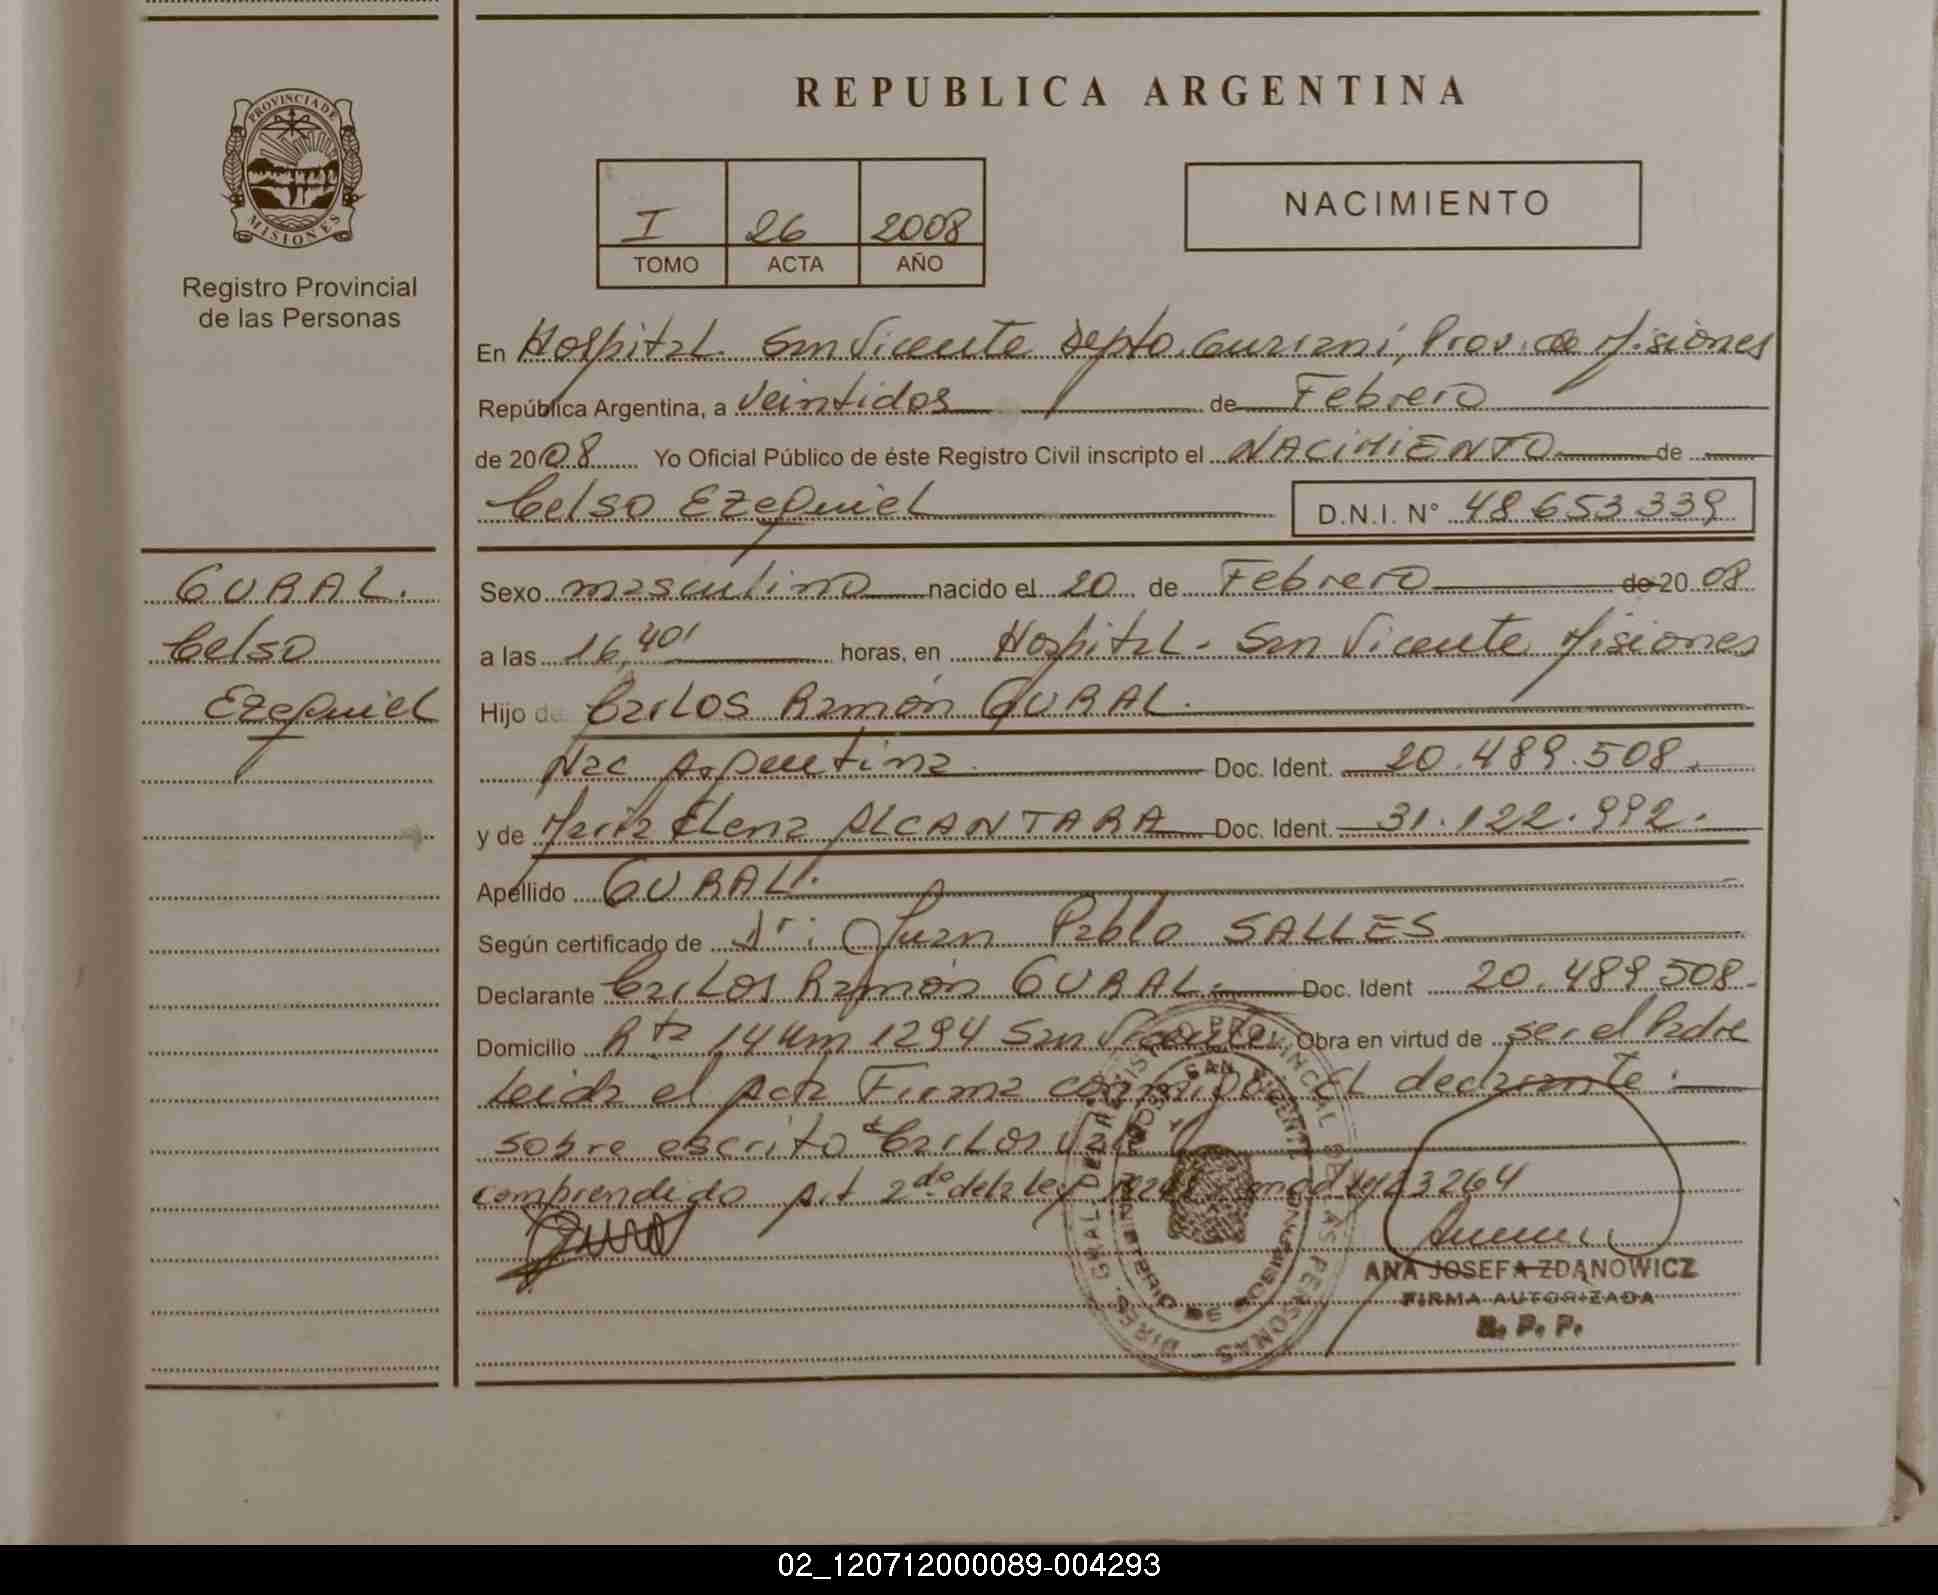 REPUBLICA ARGENTINA
PROVINCIA DE
MISIONES
Registro Provincial
de las Personas
I 26 2008
TOMO ACTA AÑO
NACIMIENTO
En Hospital San Vicente Depto. Guarani, Prov. de Misiones
República Argentina, a veintidos de Febrero
de 2008 Yo Oficial Público de éste Registro Civil inscripto el NACIMIENTO de
Celso Ezequiel D.N.I. N° 48 653 339
GURAL.
Celso
Ezequiel
Sexo masculino nacido el 20 de Febrero de 2008
a las 16,40' horas, en Hospital - San Vicente Misiones
Hijo de Carlos Ramón GURAL.
Nac Argentina Doc. Ident. 20.489.508.
y de Maria Elena ALCANTARA Doc. Ident. 31.122.992.
Apellido GURAL.
Según certificado de Dr: Juan Pablo SALLES
Declarante Carlos Ramón GURAL. Doc. Ident 20.489.508.
Domicilio Rta 14 Km 1294 San Vicente. Obra en virtud de ser el Padre
Leida el Acta Firma conmigo el declarante.
sobre escrito "Carlos
comprendido Art 2do de la ley mod ley 23264
DIREC. GRAL. DE REGISTRO PROVINCIAL DE LAS PERSONAS
SAN VICENTE
MINISTERIO DE GOBIERNO
ANA JOSEFA ZDANOWICZ
FIRMA AUTORIZADA
R. P. P.
02_120712000089-004293